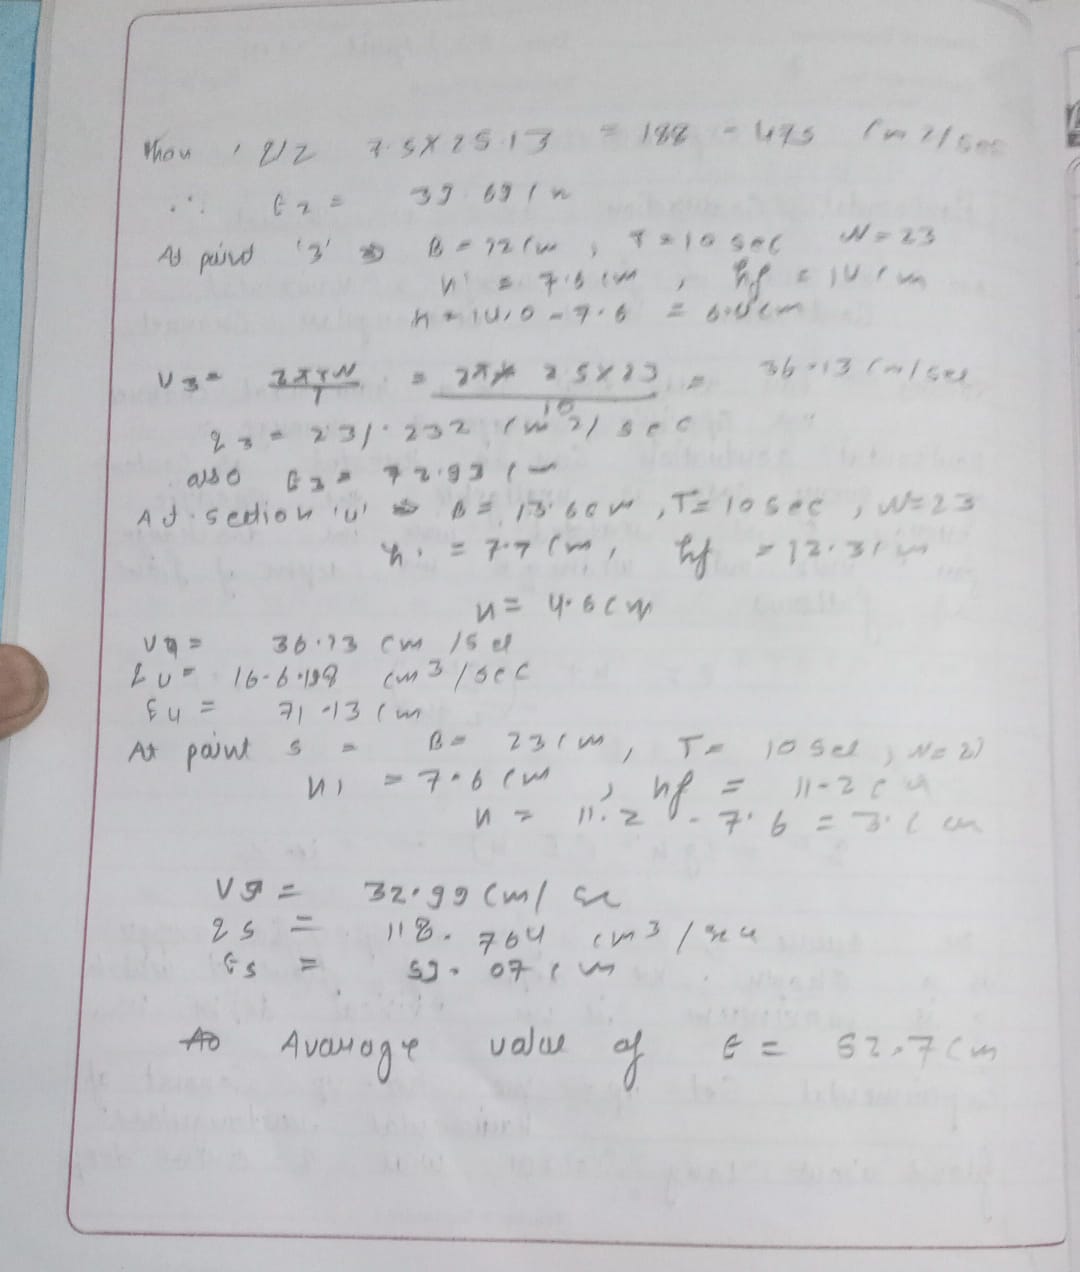 7.5 x 25.13 = 188 - 475 cm2/sec
∴ E2 = 39.69 cm
At point '3' ⇒ B = 12 cm, T = 10 sec N = 23
h1 = 7.6 cm, hf = 14 cm
h = 14.0 - 7.6 = 6.4 cm
V3 = 2πrN/T = 2π x 25 x 23/10 = 36.13 cm/sec
q3 = 231.232 cm2/sec
also E3 = 72.93 cm
At section '4' ⇒ B = 13.6 cm, T = 10 sec, N = 23
h1 = 7.7 cm, hf = 12.3 cm
h = 4.6 cm
V4 = 36.13 cm/sec
q4 = 16-6.198 cm3/sec
E4 = 71.13 cm
At point 5 = B = 23 cm, T = 10 sec, N = 21
h1 = 7.6 cm, hf = 11.2 cm
h = 11.2 - 7.6 = 3.6 cm
V5 = 32.99 cm/sec
q5 = 118.764 cm3/sec
E5 = 59.07 cm
Avarage value of E = 52.7 cm